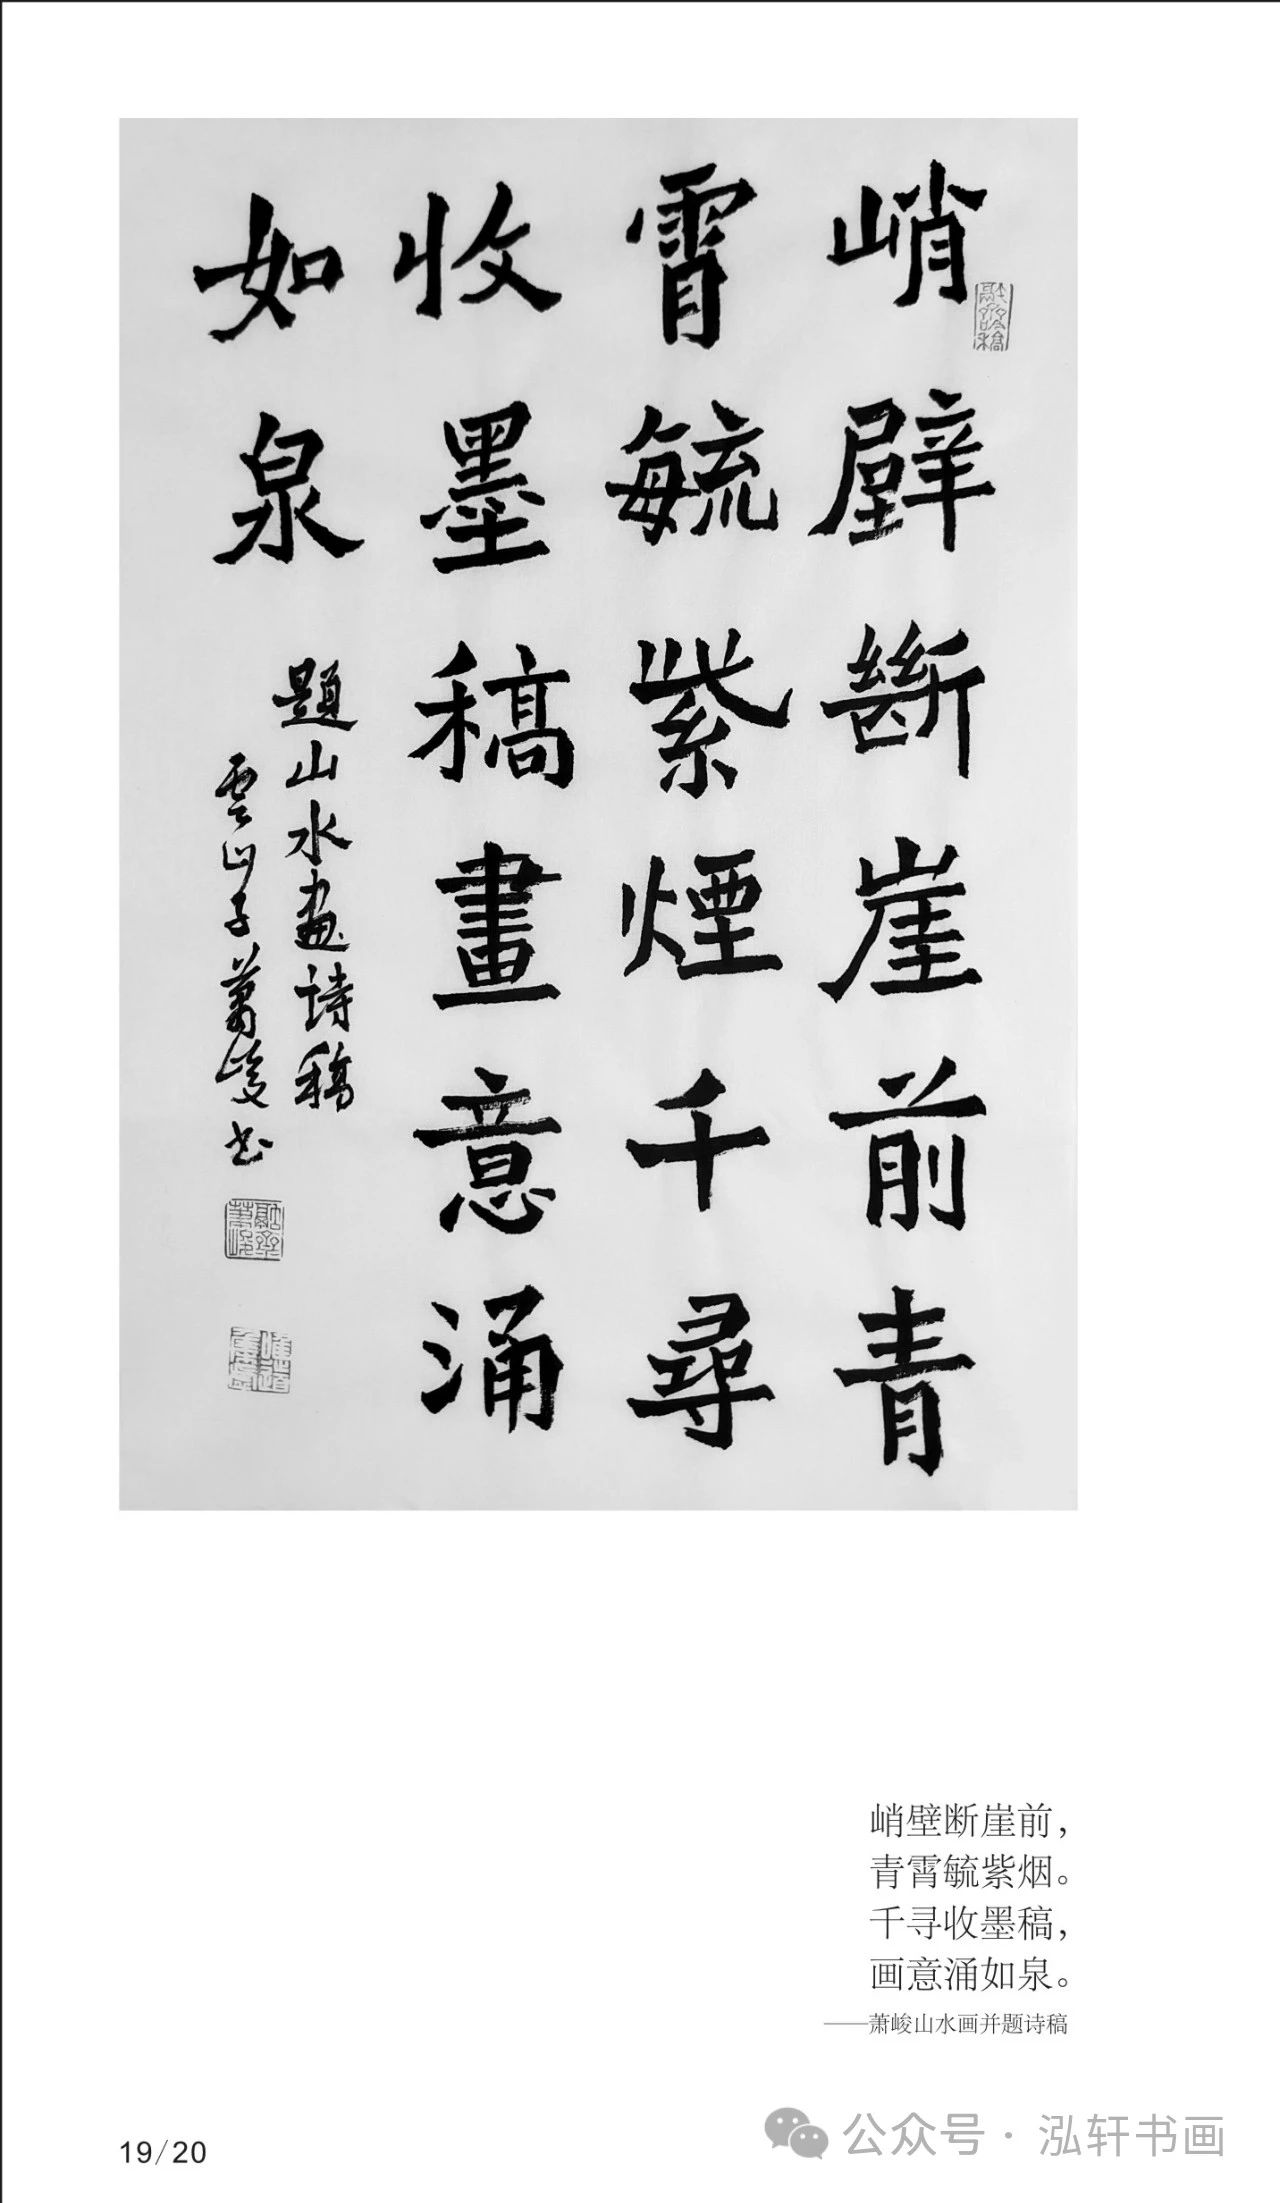 峭壁斷崖前青
霄毓紫煙千尋
收墨稿畫意涌
如泉
題山水畫诗稿
雲山子萧峻书
峭壁断崖前，
青霄毓紫烟。
千寻收墨稿，
画意涌如泉。
——萧峻山水画并题诗稿
19/20
公众号·泓轩书画